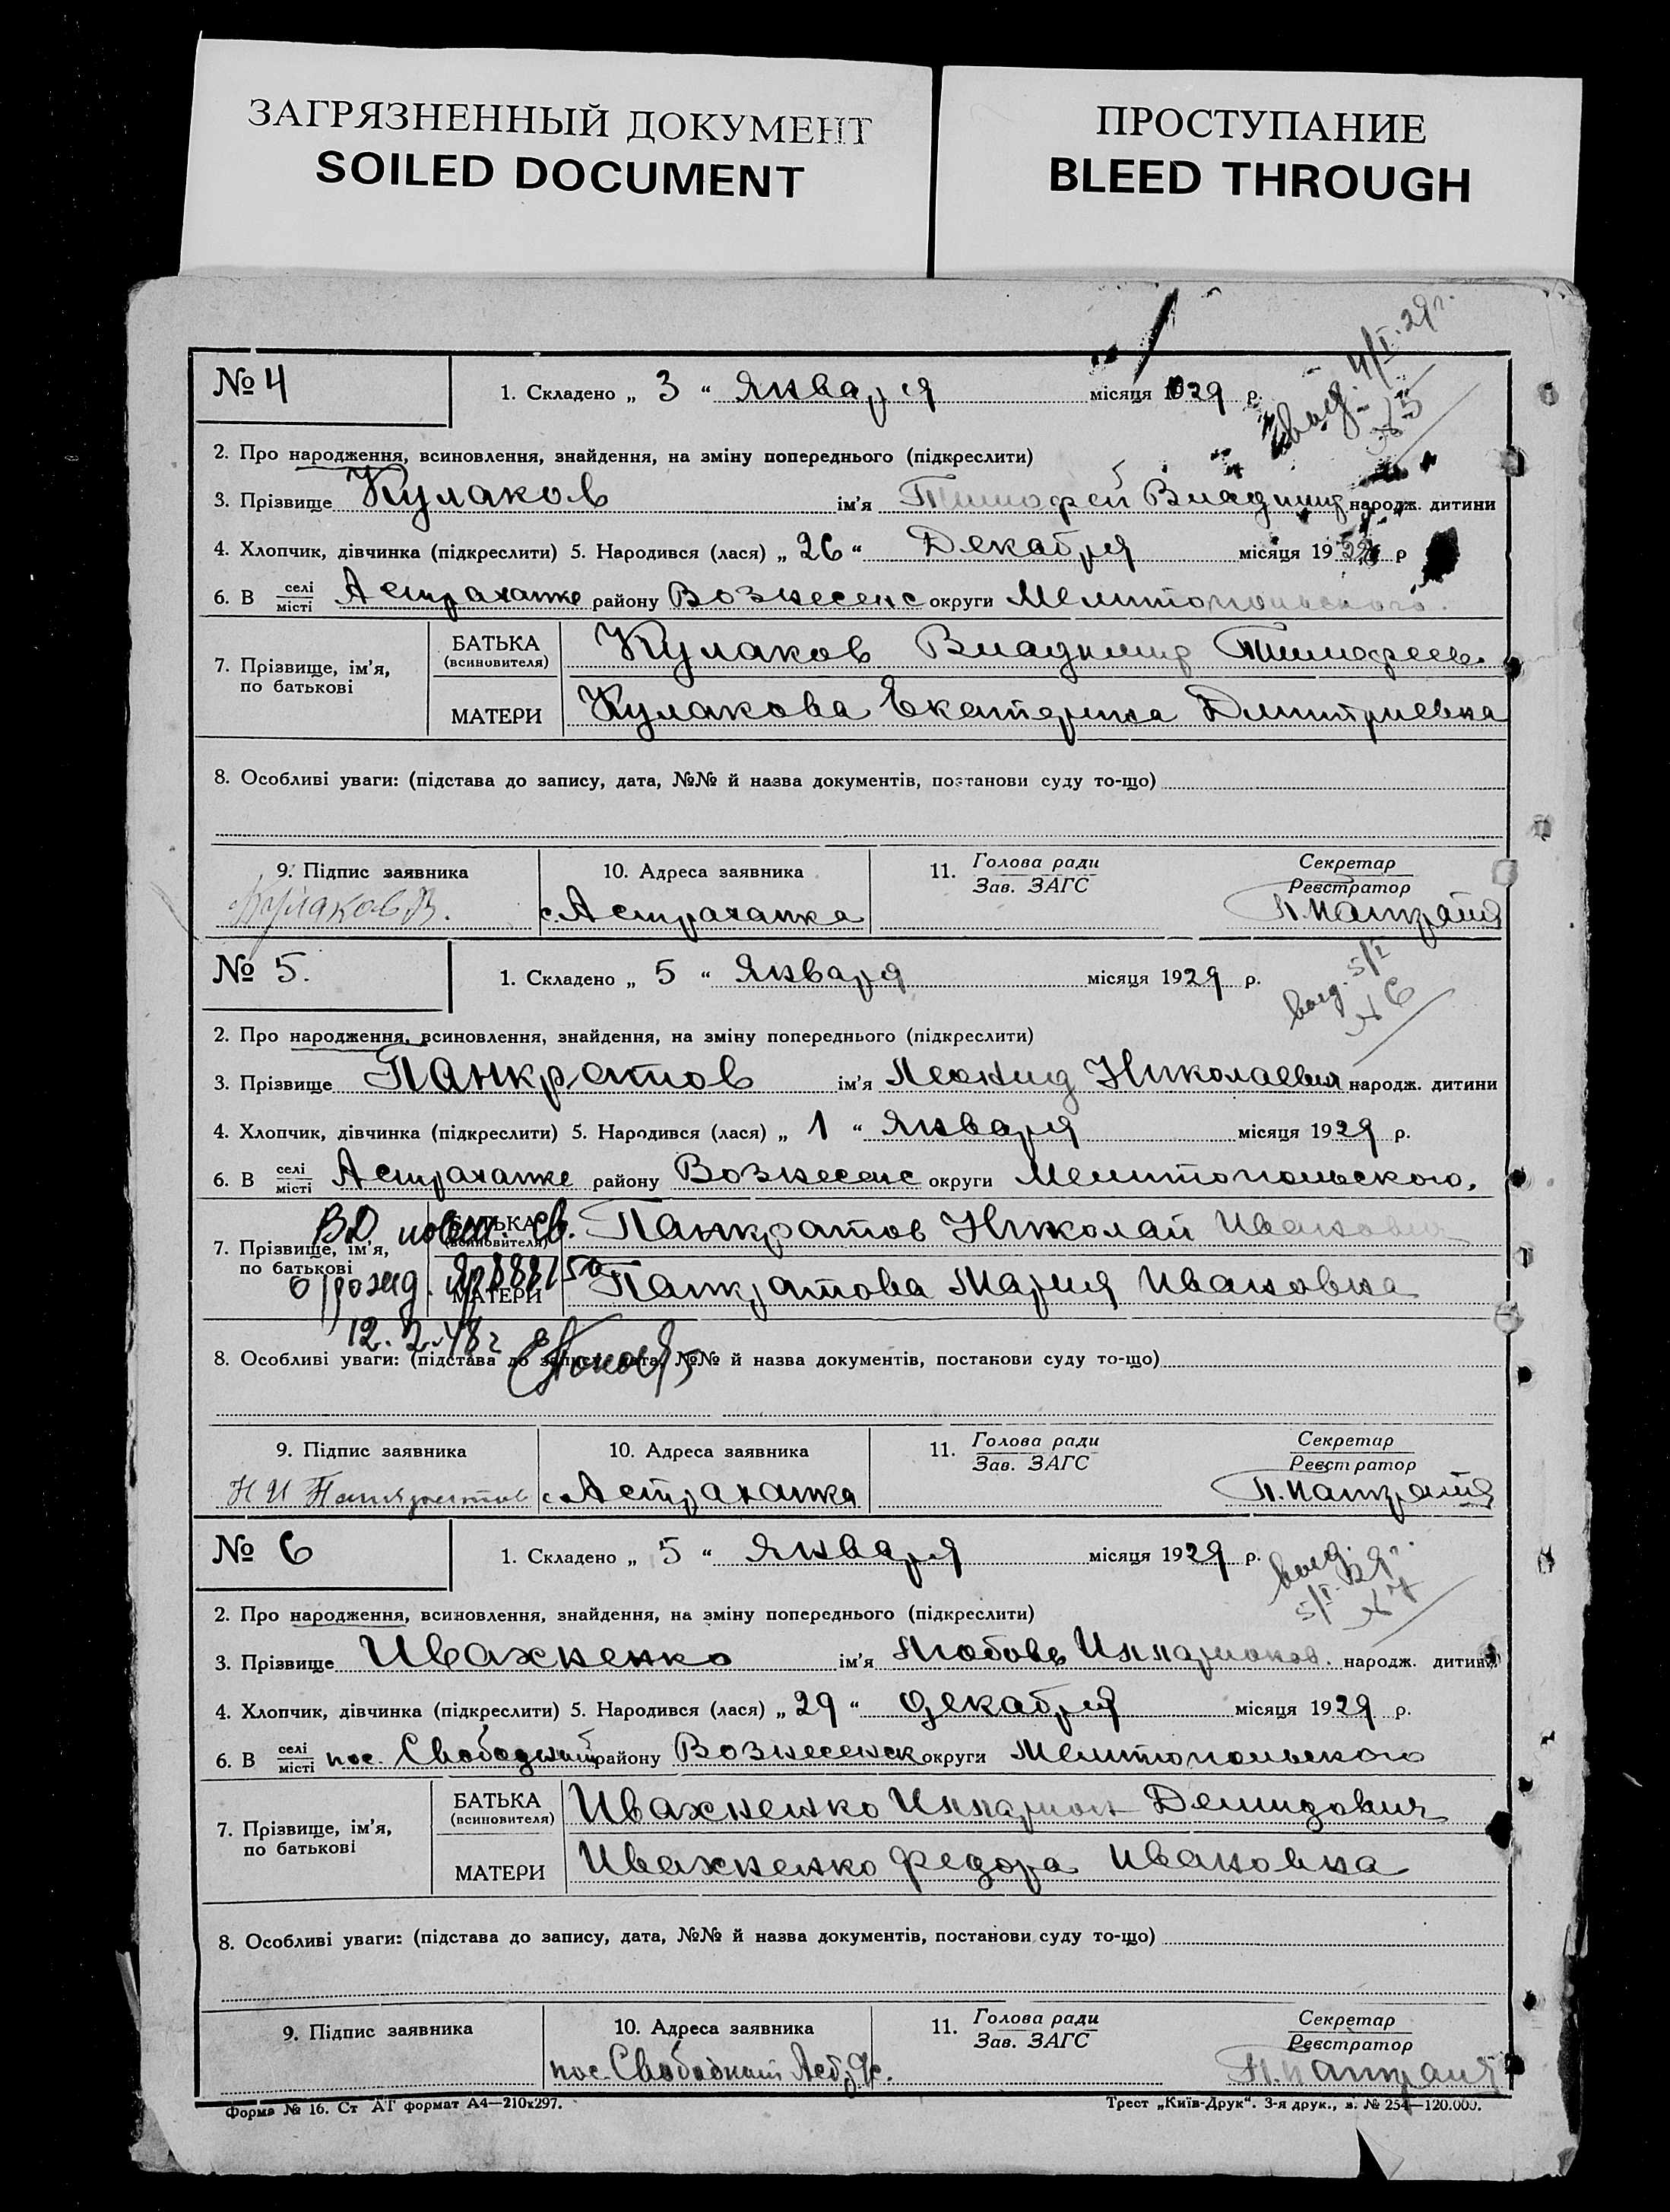 ЗАГРЯЗНЕННЫЙ ДОКУМЕНТ
SOILED DOCUMENT
ПРОСТУПАНИЕ
BLEED THROUGH
№ 4
1. Складено „ 3 “ Января місяця 1929 р.
выд. 4/I-29 г.
№ 5
2. Про народження, всиновлення, знайдення, на зміну попереднього (підкреслити)
3. Прізвище Кулаков ім'я Тимофей Владимир народж. дитини
4. Хлопчик, дівчинка (підкреслити) 5. Народився (лася) „ 26 “ Декабря місяця 19 р
6. В селі/місті Астраханке району Вознесенс округи Мелитопольского.
7. Прізвище, ім'я, по батькові
БАТЬКА (всиновителя) Кулаков Владимир Тимофеев.
МАТЕРИ Кулакова Екатерина Дмитриевна
8. Особливі уваги: (підстава до запису, дата, №№ й назва документів, постанови суду то-що)
9. Підпис заявника 10. Адреса заявника 11. Голова ради/Зав. ЗАГС Секретар/Реєстратор
Кулаков В. с. Астраханка
№ 5.
1. Складено „ 5 “ Января місяця 1929 р.
выд. 5/I
№ 6
2. Про народження, всиновлення, знайдення, на зміну попереднього (підкреслити)
3. Прізвище Панкратов ім'я Леонид Николаевич народж. дитини
4. Хлопчик, дівчинка (підкреслити) 5. Народився (лася) „ 1 “ Января місяця 1929 р.
6. В селі/місті Астраханке району Вознесенс округи Мелитопольского.
7. Прізвище, ім'я, по батькові
БАТЬКА (всиновителя) Панкратов Николай Иванович
МАТЕРИ Панкратова Мария Ивановна
св.
о рожд.
12.2.48 г
8. Особливі уваги: (підстава до запису, дата, №№ й назва документів, постанови суду то-що)
9. Підпис заявника 10. Адреса заявника 11. Голова ради/Зав. ЗАГС Секретар/Реєстратор
Н И Панкратов с. Астраханка
№ 6
1. Складено „ 5 “ Января місяця 1929 р.
выд.
5/I-29 г.
№ 7
2. Про народження, всиновлення, знайдення, на зміну попереднього (підкреслити)
3. Прізвище Ивахненко ім'я Любовь Илларионов. народж. дитини
4. Хлопчик, дівчинка (підкреслити) 5. Народився (лася) „ 29 “ Декабря місяця 1929 р.
6. В селі/місті пос. Свободный району Вознесенск округи Мелитопольского
7. Прізвище, ім'я, по батькові
БАТЬКА (всиновителя) Ивахненко Илларион Демидович
МАТЕРИ Ивахненко Федора Ивановна
8. Особливі уваги: (підстава до запису, дата, №№ й назва документів, постанови суду то-що)
9. Підпис заявника 10. Адреса заявника 11. Голова ради/Зав. ЗАГС Секретар/Реєстратор
пос. Свободный
Форма № 16. Ст АГ формат А4—210x297.
Трест „Київ-Друк“. 3-я друк., з. № 254—120.000.